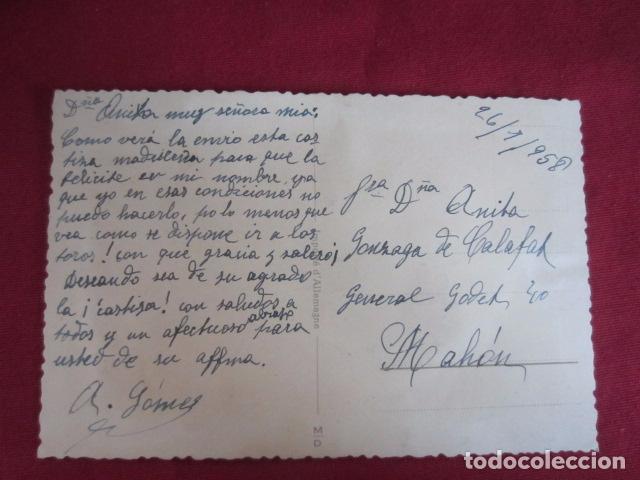 Dña Anita muy señora mia:
Como verá la envio esta cas
tiza madrileña para que la
felicite en mi nombre, ya
que yo en esas condiciones no
puedo hacerlo, por lo menos que
vea como se dispone ir a los
toros! con que gracia y salero¡
Deseando sea de su agrado
la ¡castiza! con saludos a
todos y un afectuoso abrazo para
usted de su affma.
A. Gómez
26/7/958
Sra Dña Anita
Gonzaga de Calafat
General Godet 40
Mahón
d'Allemagne
M D
todocoleccion.net